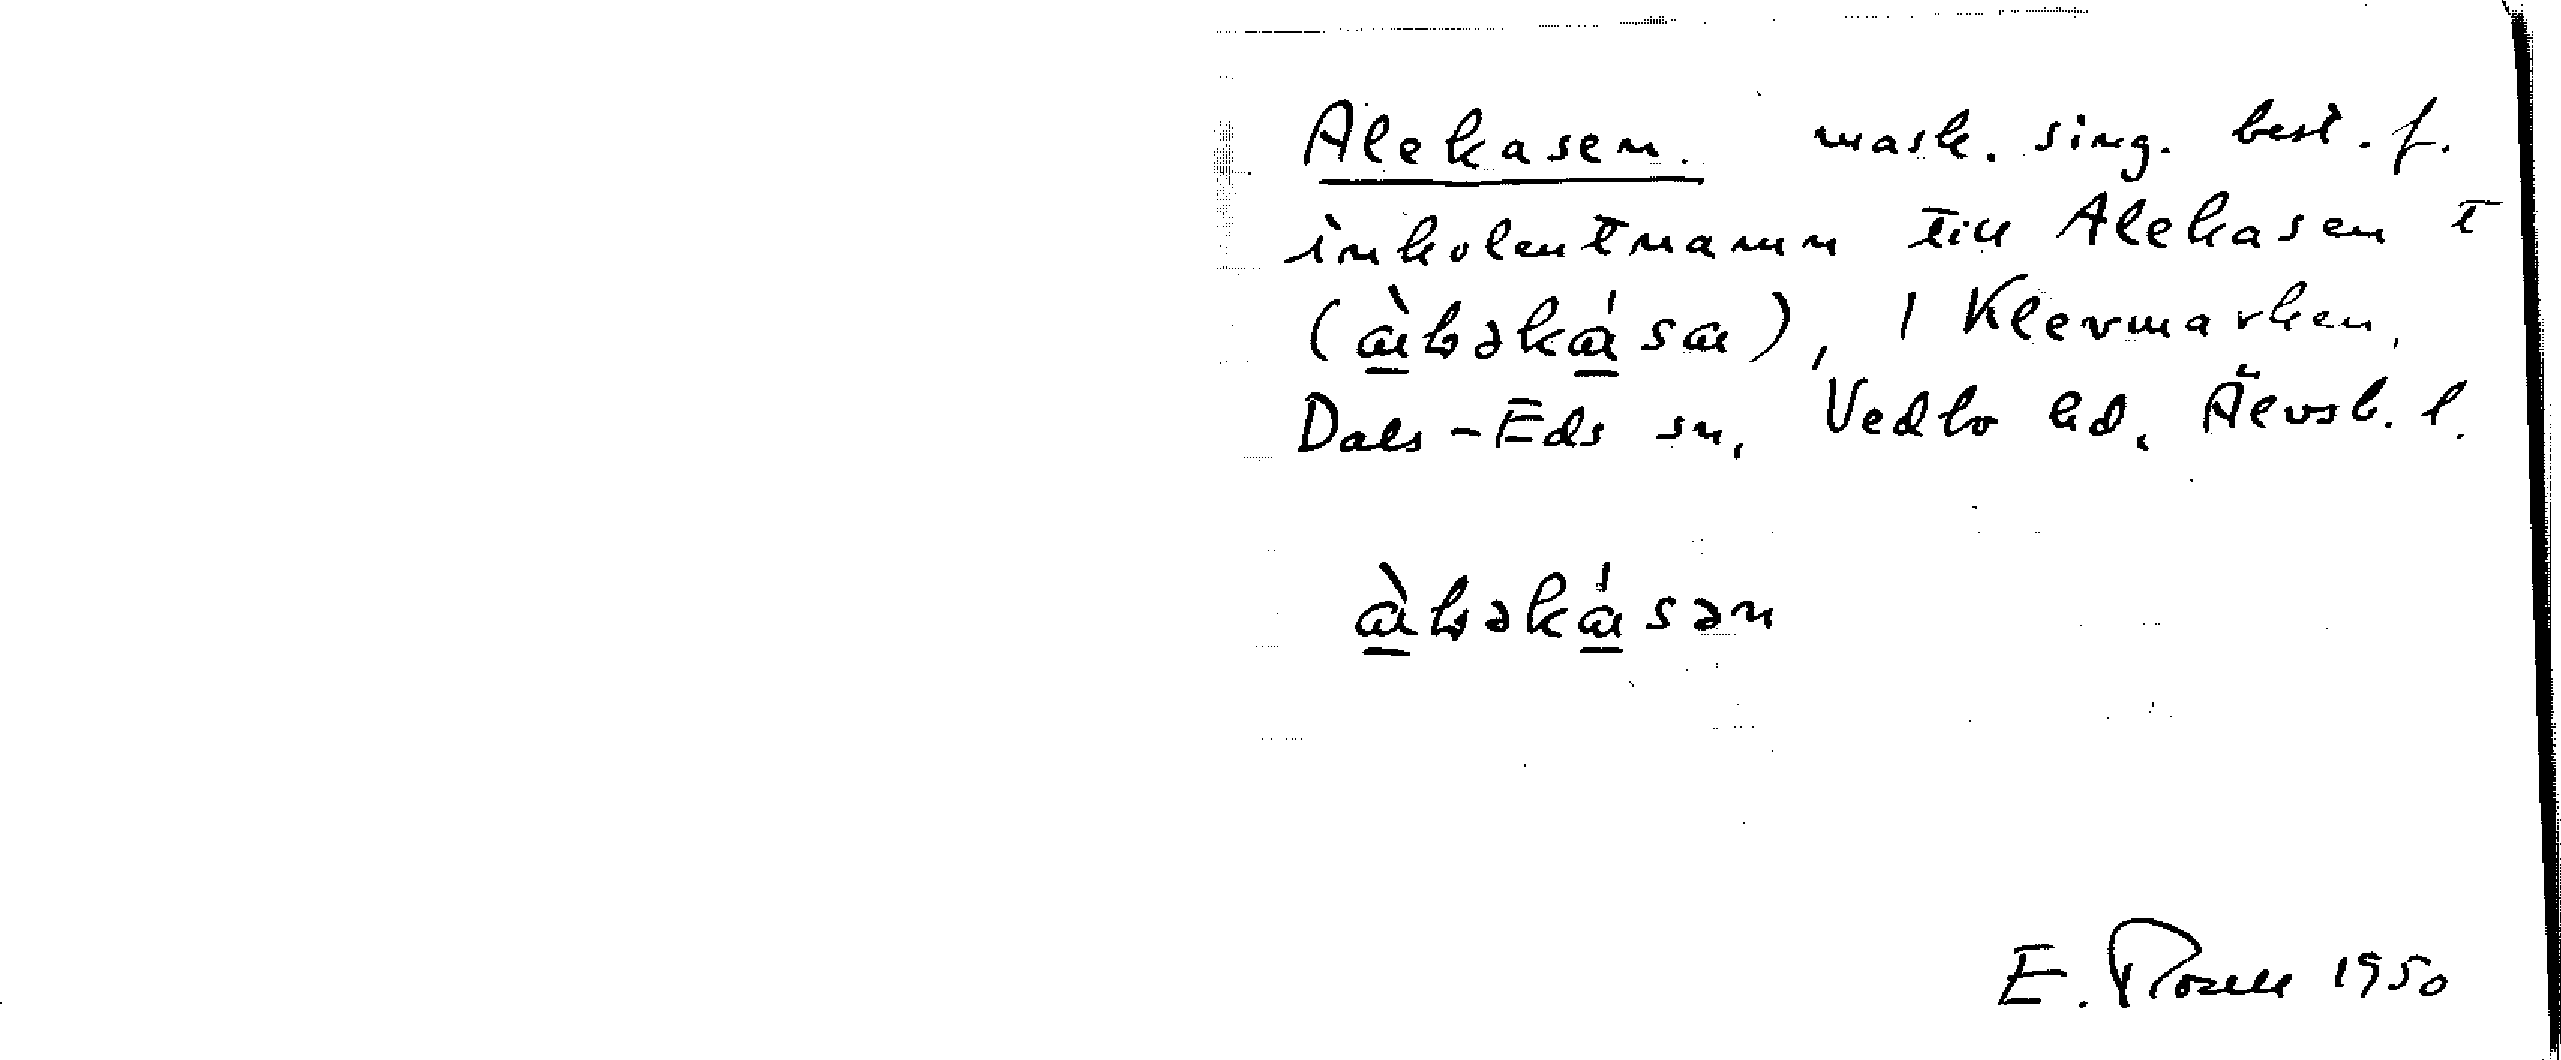 Alekasen. mask. sing. best. f.
inkolentnamn till Alekasen t
(), 1 Klevmarken,
Dals-Eds sn, Vedbo hd, Älvsb. l.
E. Rosell 1950